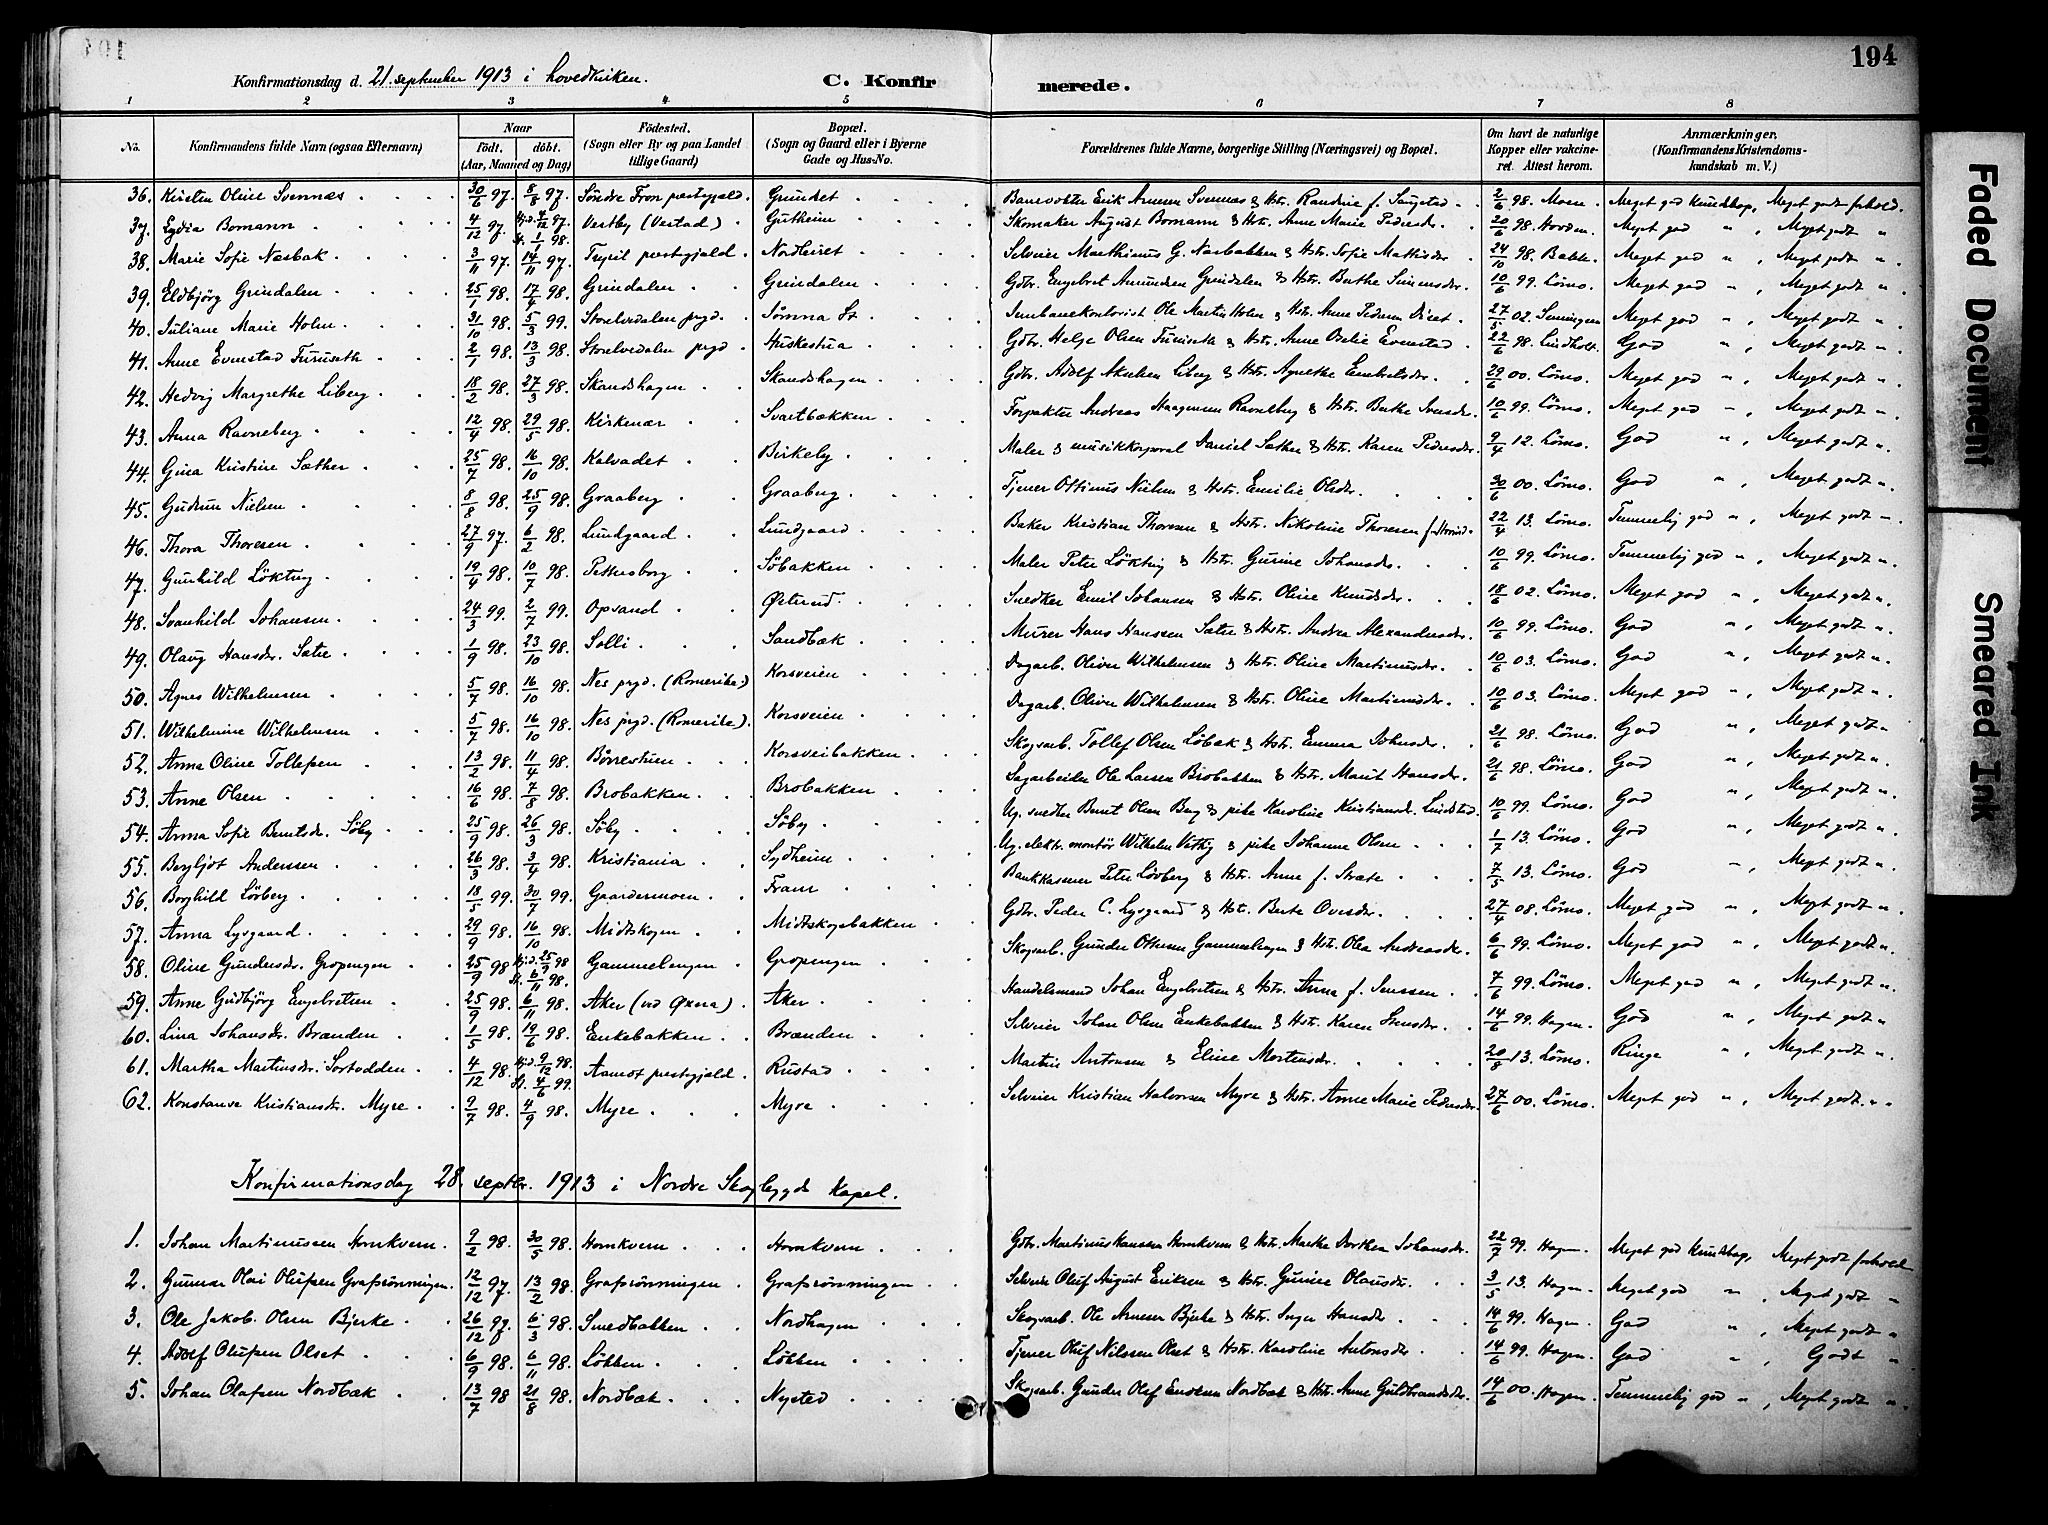 194
Konfirmationsdag d. 21. september 1913 i hovedkirken. C. Konfirmerede.
1 2 3 4 5 6 7 8
No. Konfirmandens fulde Navn (ogsaa Efternavn) Naar Født. døbt. (Aar, Maaned og Dag) Fødested. (Sogn eller By og paa Landet tillige Gaard) Bopæl. (Sogn og Gaard eller i Byerne Gade og Hus-No. Forældrenes fulde Navne, borgerlige Stilling (Næringsvei) og Bopæl. Om havt de naturlige Kopper eller vaccineret. Attest herom. Anmærkninger. (Konfirmandens Kristendomskundskab m. V.)
36. Kirsten Oline Svennæs 30/6 97. 8/8 97. Söndre Fron prestegjeld. Grundet Banevokter Erik Arnesen Svennæs & Hstr. Randine f. 2/6 98. Moen. Meget god kundskap, Meget godt forhold.
37. Lydia Bomann 4/12 97. Hjd. 4/12 97. St. 1/1 98. Vestby (Vestad) Gutheim Skomaker August Bomann & Hstr. Anne Marie Pedersdr. 20/6 98. Hovden. Meget god " , Meget godt "
38. Marie Sofie Næsbak 3/11 97. 14/11 97. Trysil prestegjeld. Nordheiret Selveier Marthinus G. Næsbakken & Hstr. Sofie Mathisdr. 24/10 98. Bakke. Meget god " , Meget godt "
39. Eldbjörg Grindalen 25/1 98. 17/4 98. Grindalen Grindalen Gdbr. Engebret Amundsen Grindalen & Hstr. Berthe Simensdr. 10/6 99. Lömo. Meget god " , Meget godt "
40. Juliane Marie Holm 31/10 98. 5/3 99. Storelvedalen prgd. Sömna St. Jernbanekontorist Ole Martin Holm & Hstr. Anne Pedersen Diset 27/5 02. Meget god " , Meget godt "
41. Anne Evenstad Furuseth 2/1 98. 13/3 98. Storelvedalen prgd Huskestua Gdbr. Helge Olsen Furuseth & Hstr. Anne Oselie Evenstad. 22/6 98. Lindholt. God " , Meget godt "
42. Hedvig Margrethe Liberg 18/2 98. 27/3 98. Skandshagen Skandshagen Gdbr. Adolf Akselsen Liberg & Hstr. Agnethe Embretsdr. 29/6 00. Lömo. Meget god " , Meget godt "
43. Anna Ravneberg 12/4 98. 29/5 98. Kirkenær Svartbækken Forpakter Andreas Haagensen Ravneberg & Hstr. Berthe Iversdr. 10/6 99. Lömo. Meget god " , Meget godt "
44. Gina Kristine Sæther 25/7 98. 16/10 98. Kalvadet Birkely Maler & musikkorporal Daniel Sæther & Hstr. Karen Pedersdr. 9/4 12. Lömo. God " , Meget godt "
45. Gudrun Nielsen 8/8 98. 25/9 98. Graaberg Graaberg Tjener Ottinus Nielsen & Hstr. Emilie Olsdr. 30/6 00. Lömo. God " , Meget godt "
46. Thora Thoresen 27/9 97. 6/2 98. Lundgaard Lundgaard Baker Kristian Thoresen & Hstr. Nikoline Thoresen f. 22/4 13. Lömo. Temmelig god " , Meget godt "
47. Gunhild Löktug 19/4 98. 10/7 98. Pettersborg Söbakken Maler Peter Löktug & Hstr. Gurine Johansdr. 10/6 99. Lömo. Temmelig god " , Meget godt "
48. Svanhild Johansen 24/3 99. 2/7 99. Opsand Østerud Snedker Emil Johansen & Hstr. Oline Knudsdr. 18/6 02. Lömo. Meget god " , Meget godt "
49. Olaug Hansdr. Sætre 1/9 98. 23/10 98. Solli Sandbæk Murer Hans Hanssen Sætre & Hstr. Andrea Alexandersdr. 10/6 99. Lömo. God " , Meget godt "
50. Agnes Wilhelmsen 5/7 98. 16/10 98. Nes prgd. (Romerike) Korsveien Dagarb. Oliver Wilhelmsen & Hstr. Oline Martinusdr. 10/6 03. Lömo. God " , Meget godt "
51. Wilhelmine Wilhelmsen 5/7 98. 16/10 98. Nes prgd. (Romerike) Korsveien Dagarb. Oliver Wilhelmsen & Hstr. Oline Martinusdr. 10/6 03. Lömo. Meget god " , Meget godt "
52. Anna Oline Tollefsen 13/2 98. 11/4 98. Börrestuen Korsveibakken Skogsarb. Tollef Olsen Löbak & Hstr. Emma Johnsdr. 21/6 98. Lömo. God " , Meget godt "
53. Anne Olsen 16/6 98. 7/8 98. Brobakken Brobakken Dagarbeider Ole Larsen Brobakken & Hstr. Marit Hansdr. 21/6 98. Lömo. God " , Meget godt "
54. Anna Sofie Berntsdr. Söby 25/9 98. 26/3 98. Söby Söby Ug. snedker Bernt Olsen Berg & pike Karoline Kristiansdr. Lindstad 10/6 99. Lömo. God " , Meget godt "
55. Bergljot Anderssen 26/3 98. 3/4 98. Kristiania Sydheim Ug. elektr. montör Wilhelm Vethig & pike Johanne Olsen 1/7 13. Lömo. God " , Meget godt "
56. Borghild Lövberg 18/5 99. 30/7 99. Gaardermoen Fram Bankkasserer Peter Lövberg & Hstr. Anne f. Stræte 7/5 13. Lömo. God " , Meget godt "
57. Anna Lysgaard 29/9 98. 16/10 98. Midtskogen Midtskogsbakken Gdbr. Peder C. Lysgaard & Hstr. Berte Ovesdr. 27/4 08. Lömo. Meget god " , Meget godt "
58. Oline Gundersdr. Gropengen 25/9 98 Hjd. 25/9 98 St. 6/11 98. Gammelengen Gropengen Skogsarb. Gunder Ottersen Gammelengen & Hstr. Olea Andreasdr. 6/6 99. Lömo. Meget god " , Meget godt "
59. Anne Gudbjörg Engebretsen 25/9 98. 6/11 98. Aker (ved Øxna) Aker Handelsmand Johan Engebretsen & Hstr. Anna f. Jenssen 7/6 99. Lömo. Meget god " , Meget godt "
60. Lina Johansdr. Brænden 1/5 98. 19/6 98. Enkebakken Brænden Selveier Johan Olsen Enkebakken & Hstr. Karen Jensdr. 14/6 99. Hagen. God " , Meget godt "
61. Martha Martinsdr. Sortodden 4/12 98. Hjd. 9/12 98. St. 4/6 99. Aamot prestegjeld. Rustad Martin Antonsen & Eline Mortensdr. 20/8 13. Lömo. Ringe " , Meget godt "
62. Konstanse Kristiansdr. Myre 9/7 98. 4/9 98. Myre Myre Selveier Kristian Halvorsen Myre & Hstr. Anne Marie Pedersdr. 27/6 00. Lömo. Meget god " , Meget godt "
Konfirmationsdag 28. septbr. 1913 i Nordre Skogbygds Kapel.
1. Johan Martinussen Hornkvern 9/2 98. 30/5 98. Hornkvern Hornkvern Gdbr. Martinus Hanssen Hornkvern & Hstr. Marthe Dorthea Johansdr. 22/7 99. Hagen. Meget god kundskap, Meget godt forhold
2. Gunnar Olai Olufsen Grafsrönningen 12/12 97 13/2 98. Grafsrönningen Grafsrönningen Selveier Oluf August Eriksen & Hstr. Gunine Olausdr. 3/5 13. Hagen. Meget god " , Meget godt "
3. Ole Jakob Olsen Bjerke 26/12 97. 6/3 98. Smedbakken Nordhagen Skogsarb. Ole Arnesen Bjerke & Hstr. Inger Hansdr. 14/6 99. Hagen. God " , Meget godt "
4. Adolf Olufsen Olset 6/9 98. 6/11 98. Løkken Løkken Tjener Oluf Nilssen Olset & Hstr. Karoline Antonsdr. 14/6 99. Hagen. God " , Godt "
5. Johan Olafsen Nordbæk 13/7 98 21/8 98. Nordbæk Nysted Skogsarb. Gunder Olef Nordbæk & Hstr. Anne Guldbrandsdr. 14/6 00. Hagen. Temmelig god " , Meget godt "
Faded Document
Smeared Ink